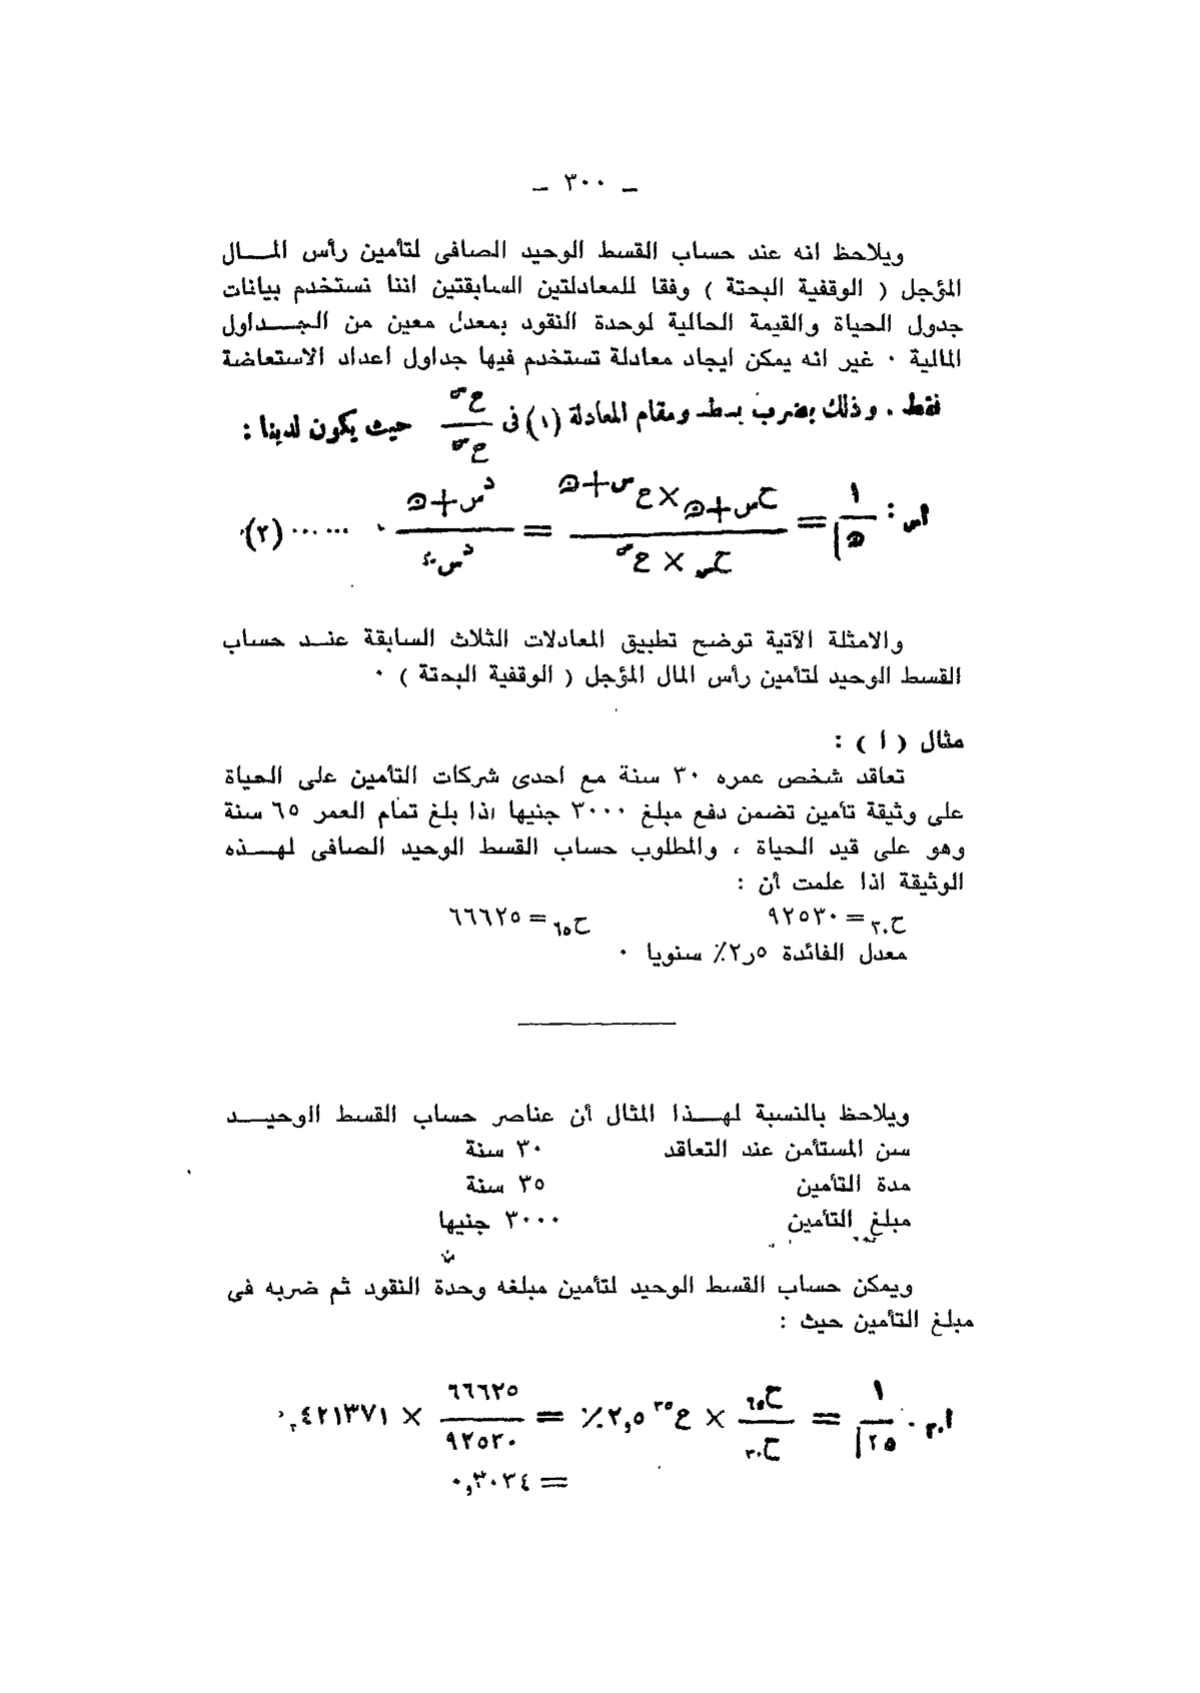 ــ ٣٠٠ ــ
ويلاحظ انه عند حساب القسط الوحيد الصافى لتأمين رأس المـــال
المؤجل ( الوقفية البحتة ) وفقا للمعادلتين السابقتين اننا نستخدم بيانات
جدول الحياة والقيمة الحالية لوحدة النقود بمعدل معين من الجـــداول
المالية ٠ غير انه يمكن ايجاد معادلة تستخدم فيها جداول اعداد الاستعاضة
فقط . وذلك بضرب بسط ومقام المعادلة (١) فى ع^س / ع^س حيث يكون لدينا :
اس : ١ / ن| = ح س+ن × ع س+ن / ح س × ع س = د س+ن / د س ...... (٢)
والامثلة الآتية توضح تطبيق المعادلات الثلاث السابقة عنـــد حساب
القسط الوحيد لتأمين رأس المال المؤجل ( الوقفية البحتة ) ٠
مثال ( ا ) :
تعاقد شخص عمره ٣٠ سنة مع احدى شركات التأمين على الحياة
على وثيقة تأمين تضمن دفع مبلغ ٣٠٠٠ جنيها اذا بلغ تمام العمر ٦٥ سنة
وهو على قيد الحياة ، والمطلوب حساب القسط الوحيد الصافى لهـــذه
الوثيقة اذا علمت أن :
ح٣٠ = ٩٢٥٣٠ ح٦٥ = ٦٦٦٢٥
معدل الفائدة ٢٫٥٪ سنويا ٠
ويلاحظ بالنسبة لهـــذا المثال أن عناصر حساب القسط الوحيـــد
سن المستأمن عند التعاقد ٣٠ سنة
مدة التأمين ٣٥ سنة
مبلغ التأمين ٣٠٠٠ جنيها
ويمكن حساب القسط الوحيد لتأمين مبلغه وحدة النقود ثم ضربه فى
مبلغ التأمين حيث :
ا٣٠ . ١ / ٣٥| = ح٦٥ / ح٣٠ × ع^٣٥ ٢,٥٪ = ٦٦٦٢٥ / ٩٢٥٣٠ × ٤٢١٣٧١,
= ٠,٣٠٣٤